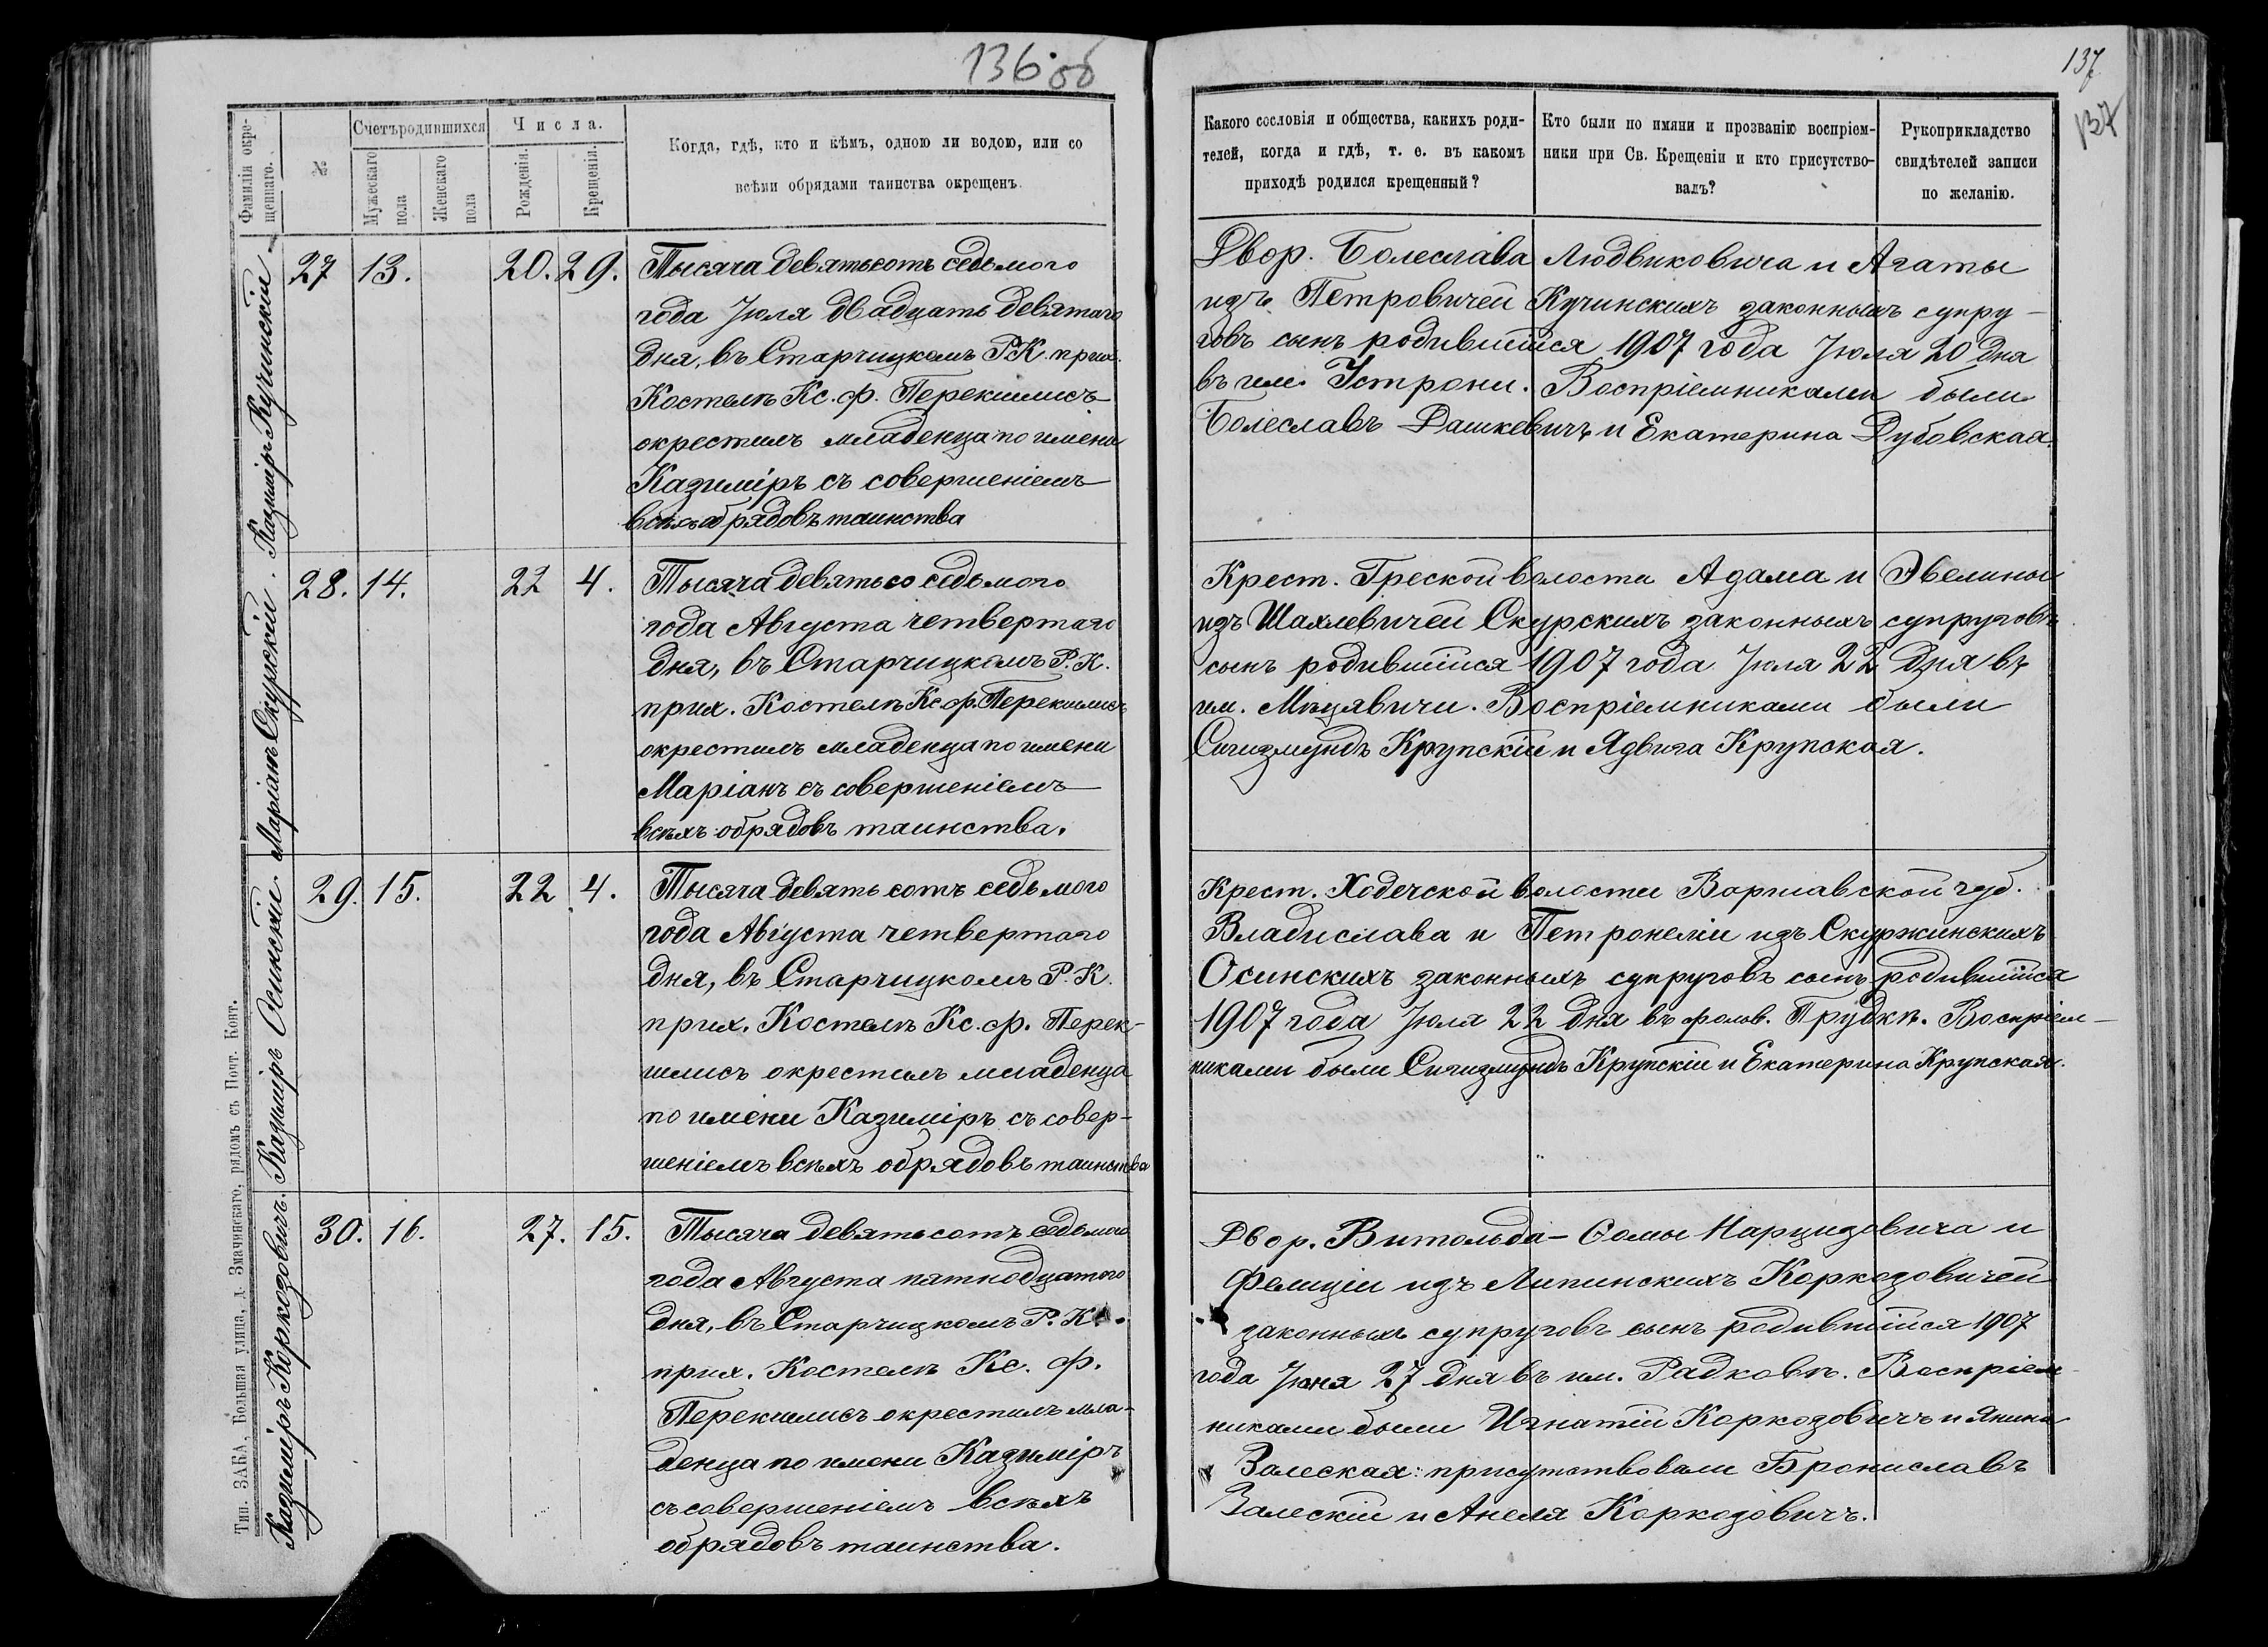 136 об
137
137
Фамилія окре-
щеннаго.
№
Счетъ родившихся
Мужескаго
пола
Женскаго
пола
Числа.
Рожденія.
Крещенія.
Когда, гдѣ, кто и кѣмъ, одною ли водою, или со
всѣми обрядами таинства окрещенъ.
Какого сословія и общества, какихъ роди-
телей, когда и гдѣ, т. е. въ какомъ
приходѣ родился крещенный?
Кто были по имяни и прозванію воспріем-
ники при Св. Крещеніи и кто присутство-
валъ?
Рукоприкладство
свидѣтелей записи
по желанію.
Казиміръ Кучинскій
27 13. 20. 29.
Тысяча девятьсотъ седьмого
года Іюля двадцать девятаго
дня, въ Старчицкомъ Р.К. прих.
Костелѣ Кс. ф. Перекшлисъ
окрестилъ младенца по имени
Казиміръ съ совершеніемъ
всѣхъ обрядовъ таинства
Двор. Болеслава Людвиковича и Агаты
изъ Петровичей Кучинскихъ законныхъ супру-
говъ сынъ родившійся 1907 года Іюля 20 дня
въ им. Устрони. Воспріемниками были
Болеславъ Дашкевичъ и Екатерина Дубовская.
Маріанъ Скурскій.
28. 14. 22 4.
Тысяча девятьсо седьмого
года Августа четвертаго
дня, въ Старчицкомъ Р. К.
прих. Костелѣ Кс. ф. Перекшлисъ
окрестилъ младенца по имени
Маріанъ съ совершеніемъ
всѣхъ обрядовъ таинства.
Крест. Греской волости Адама и Эвелины
изъ Шахлевичей Скурскихъ законныхъ супруговъ
сынъ родившійся 1907 года Іюля 22 дня въ
им. Мѣцявичи. Воспріемниками были
Сигизмундъ Крупскій и Ядвига Крупская.
Казиміръ Осинскій.
29. 15. 22 4.
Тысяча девятьсотъ седьмого
года Августа четвертаго
дня, въ Старчицкомъ Р. К.
прих. Костелѣ Кс. ф. Перек-
шлисъ окрестилъ младенца
по имени Казиміръ съ совер-
шеніемъ всѣхъ обрядовъ таинства
Крест. Ходечской волости Варшавской губ.
Владислава и Петронеліи изъ Скуржинскихъ
Осинскихъ законныхъ супруговъ сынъ родившійся
1907 года Іюля 22 дня въ фольв. Трудкѣ. Воспріем-
никами были Сигизмундъ Крупскій и Екатерина Крупская.
Казиміръ Коркозовичъ.
30. 16. 27. 15.
Тысяча девятьсотъ седьмого
года Августа пятнадцатого
дня, въ Старчицкомъ Р. К.
прих. Костелѣ Кс. ф.
Перекшлисъ окрестилъ мла-
денца по имени Казиміръ
съ совершеніемъ всѣхъ
обрядовъ таинства.
Двор. Витольда-Ѳомы Нарцизовича и
Фелиціи изъ Липинскихъ Коркозовичей
законныхъ супруговъ сынъ родившійся 1907
года Іюня 27 дня въ им. Радковѣ. Воспріем-
никами были Игнатій Коркозовичъ и Янина
Залеская: присутствовали Брониславъ
Залескій и Анеля Коркозовичъ.
Тип. ЗАКА, Большая улица, д. Змачинскаго, рядомъ съ Почт. Конт.